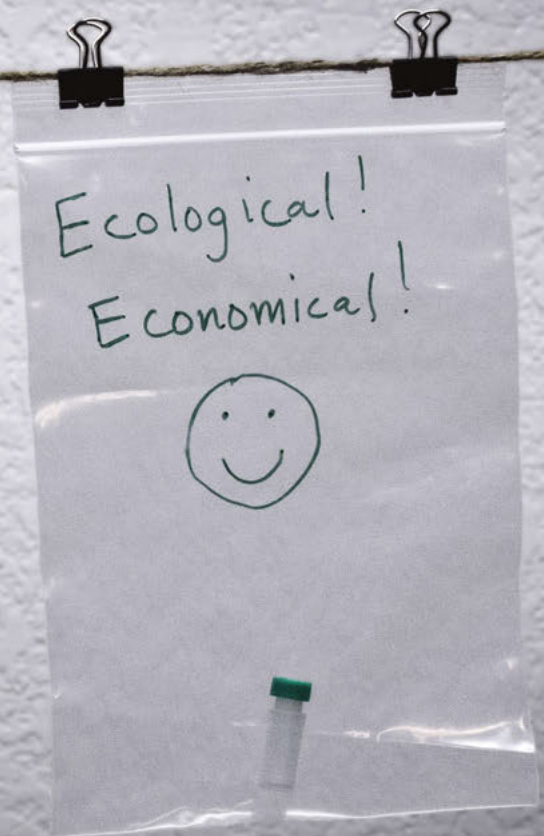 Ecological!
Economical!